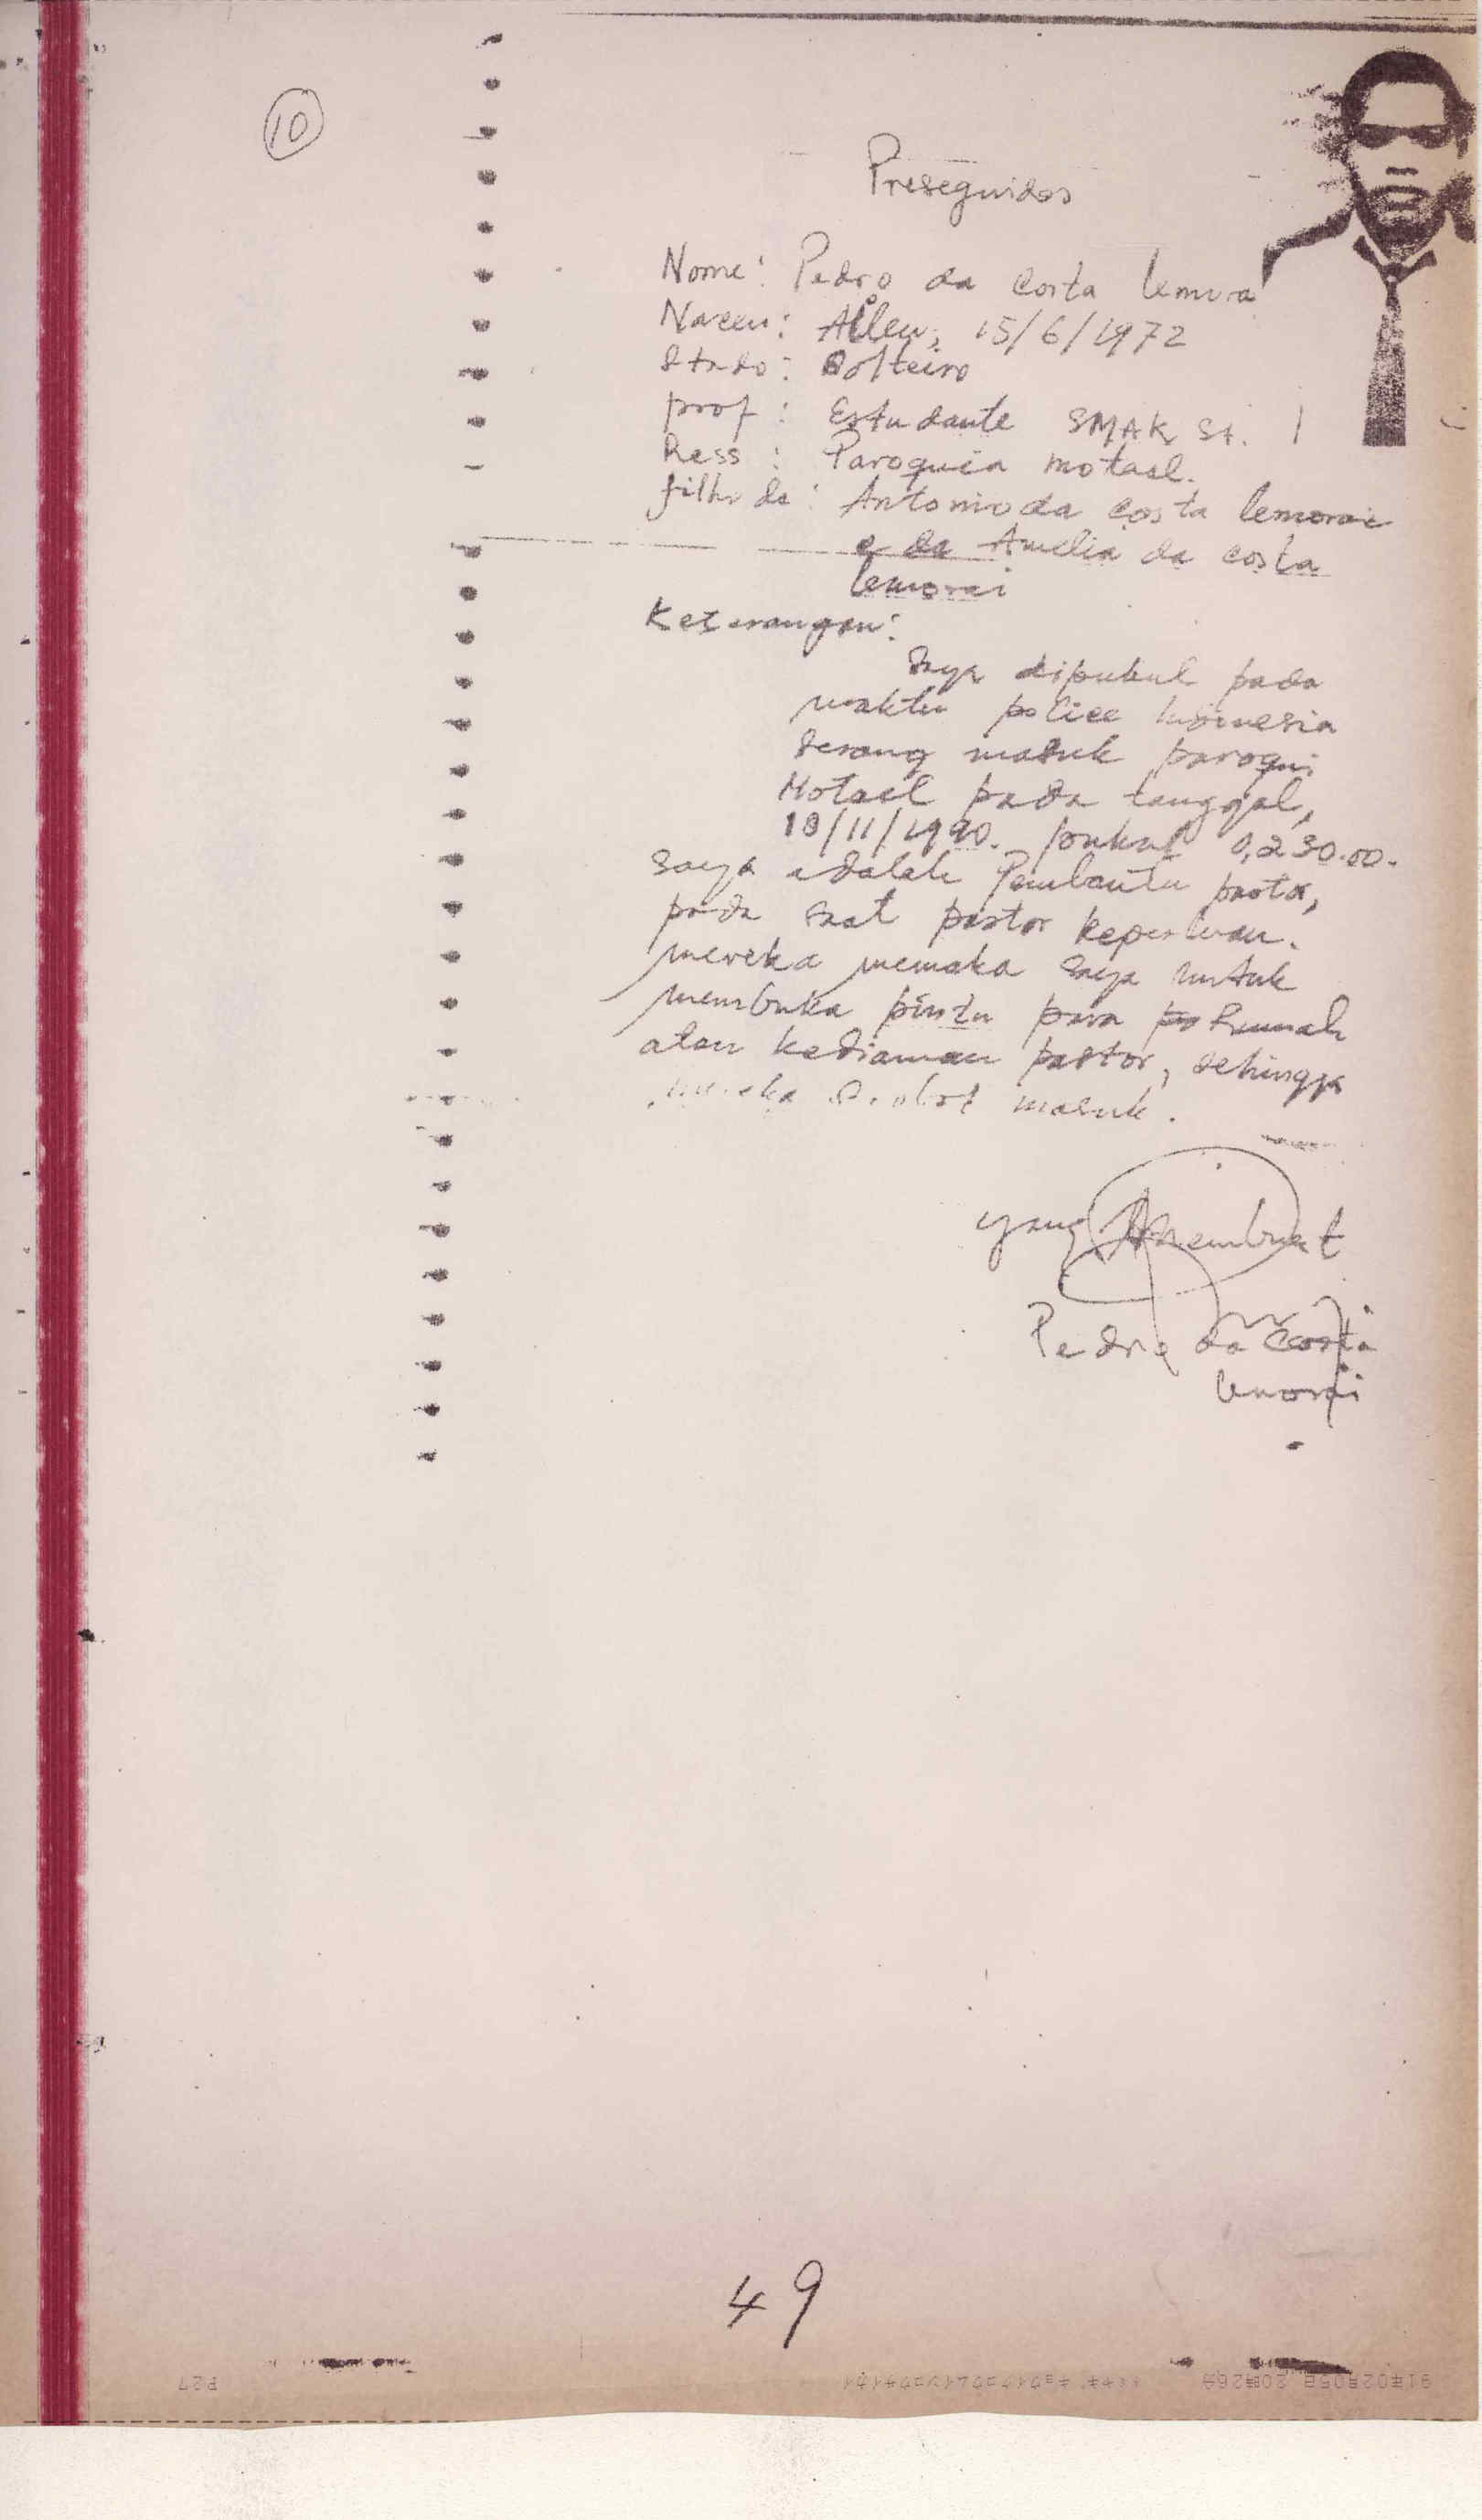 10
Preseguidos
Nome: Pedro da Costa lemora
Naceu: Aileu, 15/6/1972
Stado: Solteiro
prof: Estudante SMAK St. 1
Ress: Paroquia motael.
filho de: Antonio da Costa lemorai
e da Amelia da costa
lemorai
Keterangan:
Saya dipukul pada
waktu police Indonesia
serang masuk paroqui
Motael pada tanggal,
18/11/1990. pukul 0,230.00.
saya adalah Pembantu pastor,
pada saat pastor keperluan.
mereka memaka saya untuk
membuka pintu para rumah
atau kediaman pastor, sehingga
mereka masuk.
yang membuat
Pedro da Costa
lemorai
49
P27
91年02月05日 20時26分